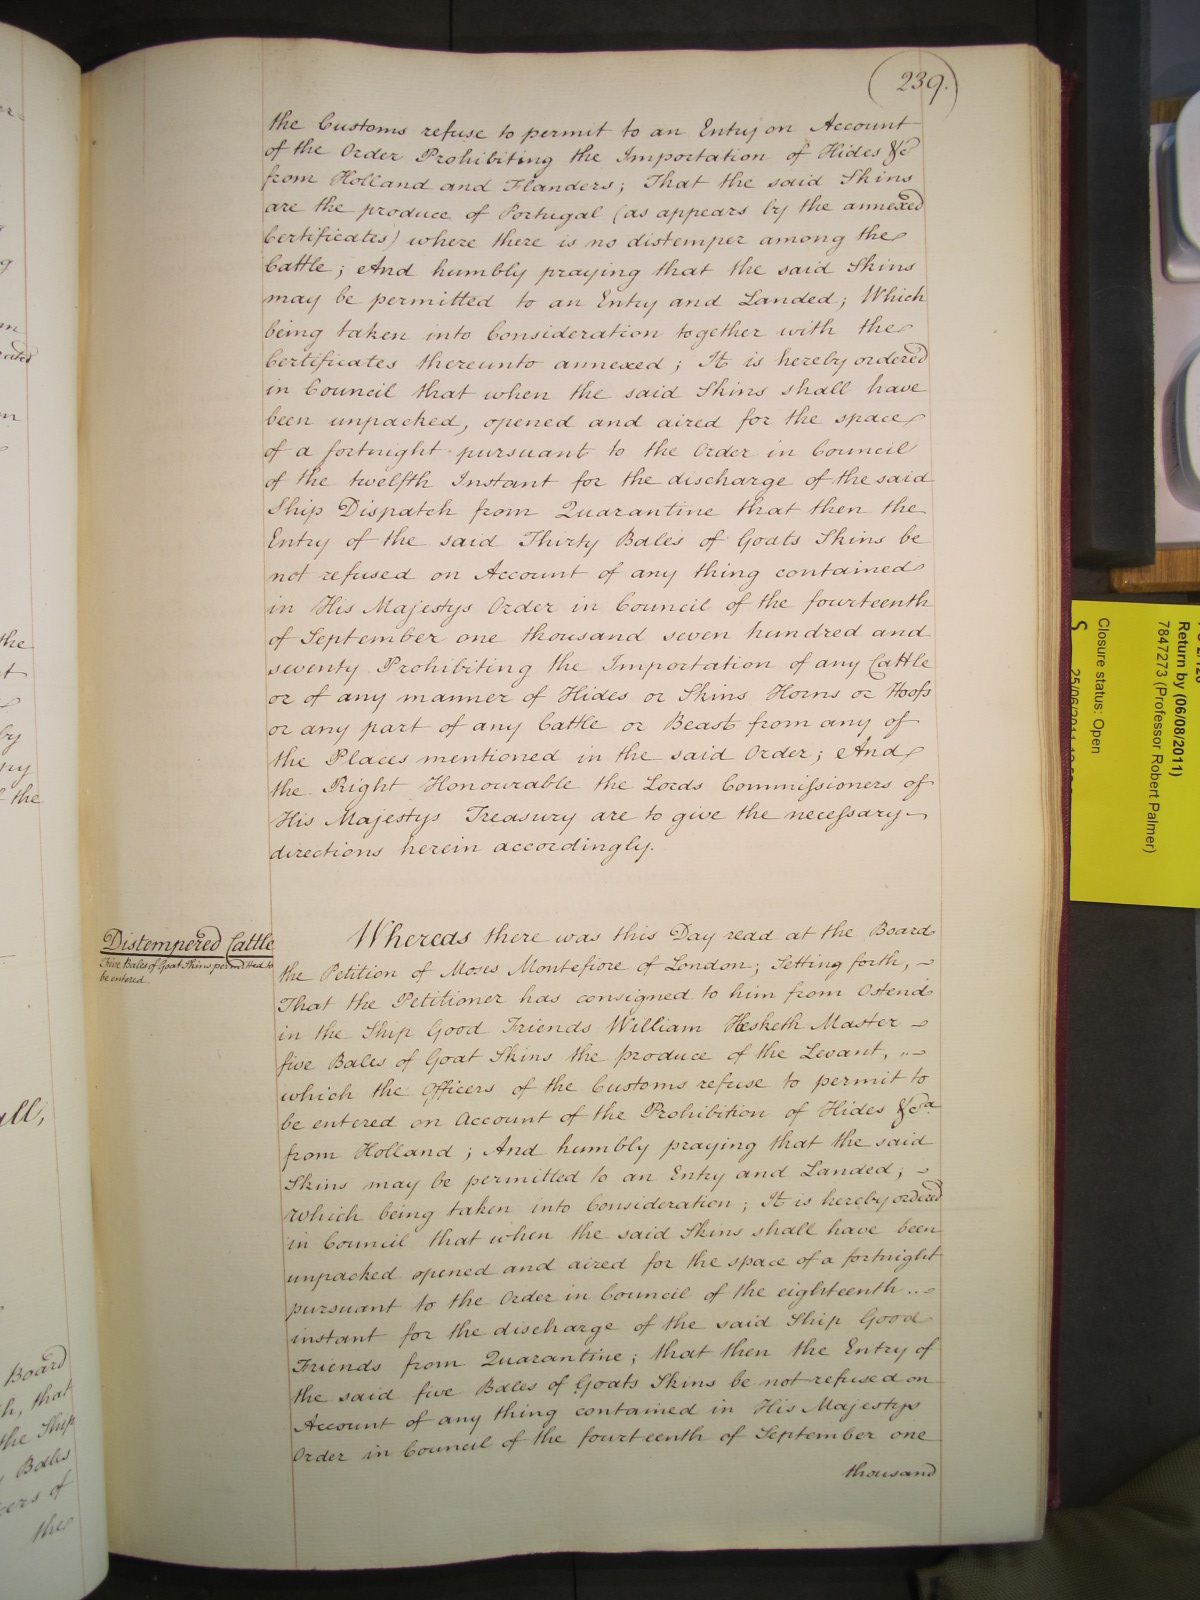 239.
the Customs refuse to permit to an Entry on Account
of the Order Prohibiting the Importation of Hides &c
from Holland and Flanders; That the said Skins
are the produce of Portugal (as appears by the annexed
Certificates) where there is no distemper among the
Cattle; And humbly praying that the said Skins
may be permitted to an Entry and Landed; Which
being taken into Consideration together with the
Certificates thereunto annexed; It is hereby ordered
in Council that when the said Skins shall have
been unpacked, opened and aired for the space
of a fortnight pursuant to the Order in Council
of the twelfth Instant for the discharge of the said
Ship Dispatch from Quarantine that then the
Entry of the said Thirty Bales of Goats Skins be
not refused on Account of any thing contained
in His Majestys Order in Council of the fourteenth
of September one thousand seven hundred and
seventy Prohibiting the Importation of any Cattle
or of any manner of Hides or Skins Horns or Hoofs
or any part of any Cattle or Beast from any of
the Places mentioned in the said Order; And
the Right Honourable the Lords Commissioners of
His Majestys Treasury are to give the necessary
directions herein accordingly.
Distempered Cattle
Five Bales of Goat Skins permitted to
be entered
Whereas there was this Day read at the Board
the Petition of Moses Montefiore of London; Setting forth,
That the Petitioner has consigned to him from Ostend
in the Ship Good Friends William Hesketh Master
five Bales of Goat Skins the produce of the Levant,
which the Officers of the Customs refuse to permit to
be entered on Account of the Prohibition of Hides &ca
from Holland; And humbly praying that the said
Skins may be permitted to an Entry and Landed;
Which being taken into Consideration; It is hereby ordered
in Council that when the said Skins shall have been
unpacked opened and aired for the space of a fortnight
pursuant to the Order in Council of the eighteenth
instant for the discharge of the said Ship Good
Friends from Quarantine; that then the Entry of
the said five Bales of Goats Skins be not refused on
Account of any thing contained in His Majestys
Order in Council of the fourteenth of September one
thousand
Return by (06/08/2011)
7847273 (Professor Robert Palmer)
Closure status: Open
the
by
the
all,
Board
that
the Ship
Bales
of
the